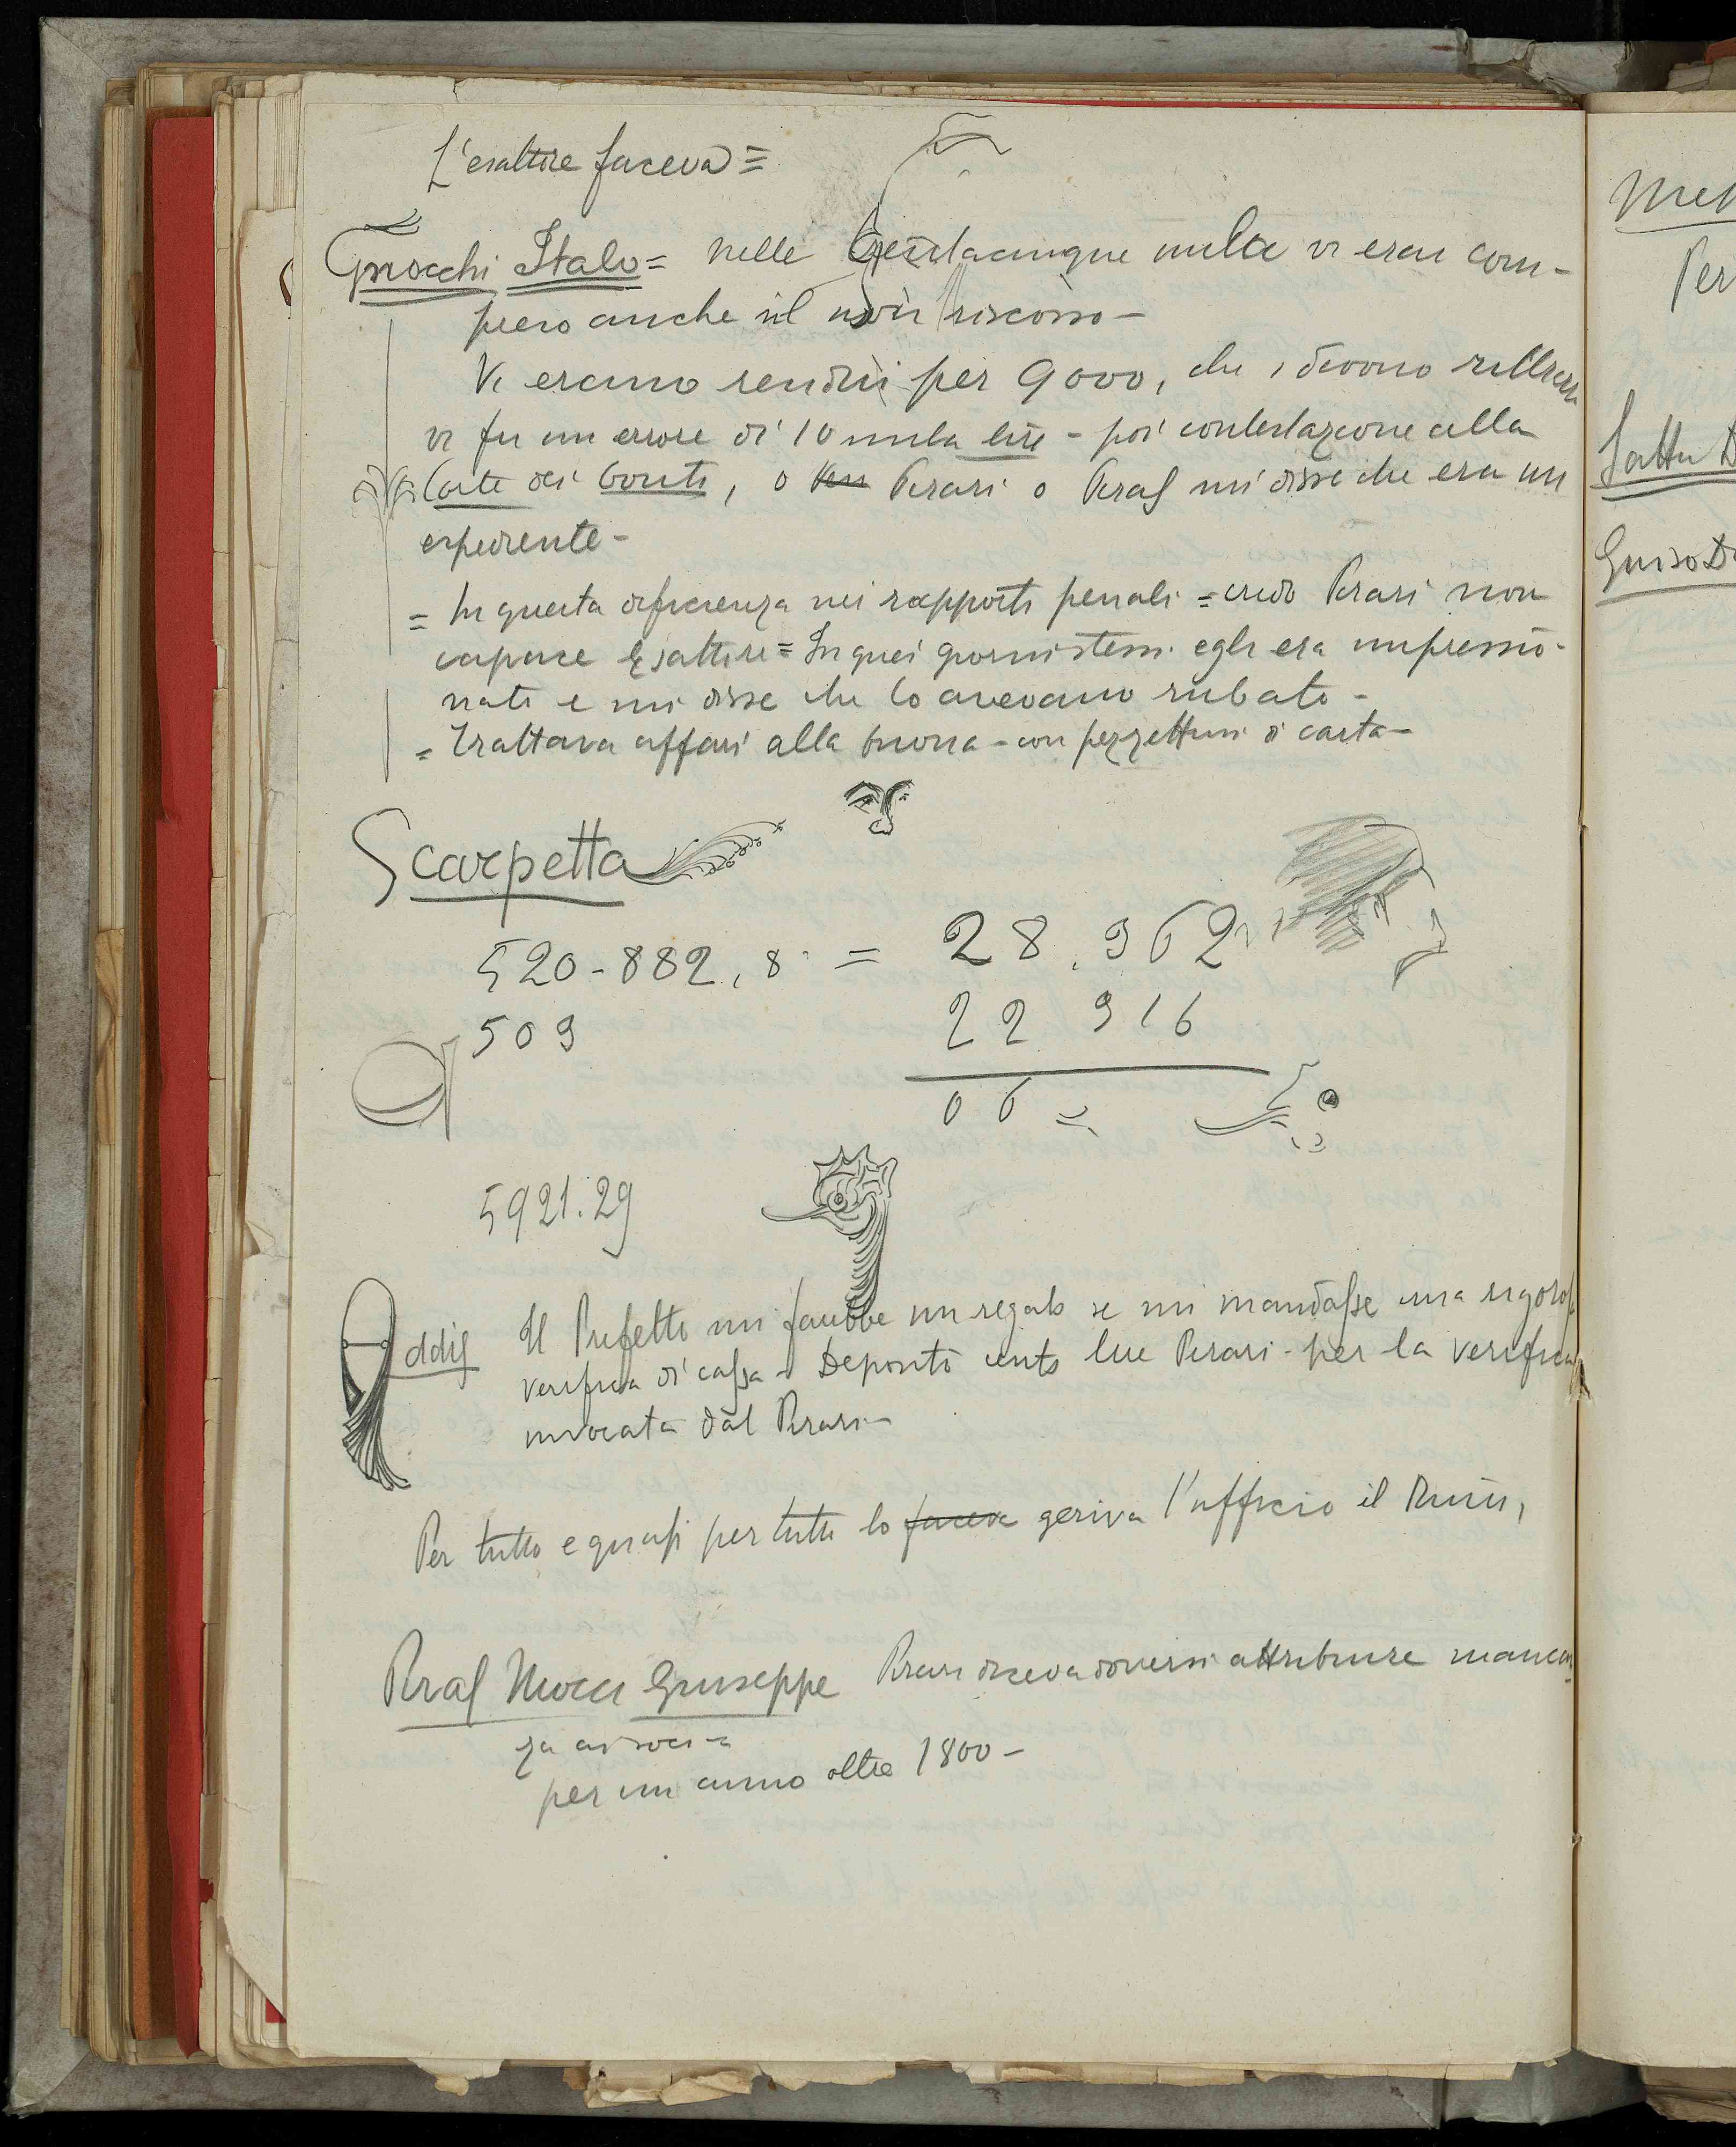 L'esattore faceva =
Gnocchi Italo = nelle trentacinque mille vi era com-
preso anche il non riscosso -
Vi erano residui per 9000, che si devono
vi fu un errore di 10 mila lire - poi contestazione alla
Corte dei Conti, o Perari o Peraf mi disse che era un
espediente -
= In questa deficienza nei rapporti penali = credo Perari non
capace Esattore = In quei giorni stessi egli era impressio-
nato e mi disse che lo avevano rubato -
= Trattava affari alla buona - con pezzettini di carta -
Scarpetta
520 - 882, 8 = 28.962
509 22 916
06 =
5921.29
Addis Il Prefetto mi farebbe un regalo se mi mandasse una rigorosa
verifica di cassa - Depositò cento lire Perari - per la verifica
invocata dal Perari -
Per tutto e quasi per tutto lo faceva geriva l'ufficio il
Peraf Mocci Giuseppe Perari diceva doversi attribuire mancan-
za ai soci -
per un anno oltre 1800 -
Per
Fattu D
Guiso D